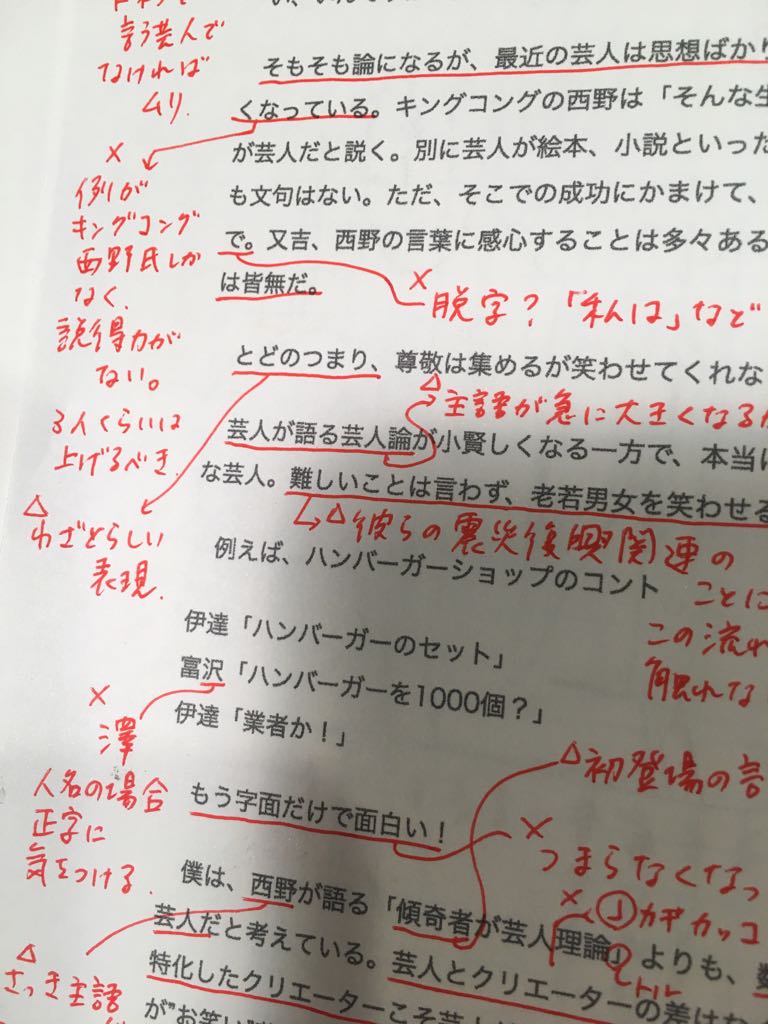 言う芸人で
なければ
ムリ.
そもそも論になるが、最近の芸人は思想ばかり
くなっている。キングコングの西野は「そんな生
が芸人だと説く。別に芸人が絵本、小説といった
も文句はない。ただ、そこでの成功にかまけて、
で。又吉、西野の言葉に感心することは多々ある
は皆無だ。
×
例が
キングコング
西野氏しか
なく.
説得力が
ない。
3人くらいは
上げるべき.
×
脱字?「私は」など
とどのつまり、尊敬は集めるが笑わせてくれな
△
主語が急に大きくなる
芸人が語る芸人論が小賢しくなる一方で、本当に
な芸人。難しいことは言わず、老若男女を笑わせる
△
わざとらしい
表現.
△彼らの震災復興関連の
ことに
この流れ
触れな
例えば、ハンバーガーショップのコント
伊達「ハンバーガーのセット」
富沢「ハンバーガーを1000個?」
伊達「業者か!」
×
澤
人名の場合
正字に
気をつける.
△初登場の言
もう字面だけで面白い!
×
つまらなくなっ
僕は、西野が語る「傾奇者が芸人理論」よりも、
×
」カギカッコ
トル
芸人だと考えている。芸人とクリエーターの差はな
特化したクリエーターこそ芸人
が"お笑い"
△
さっき主語